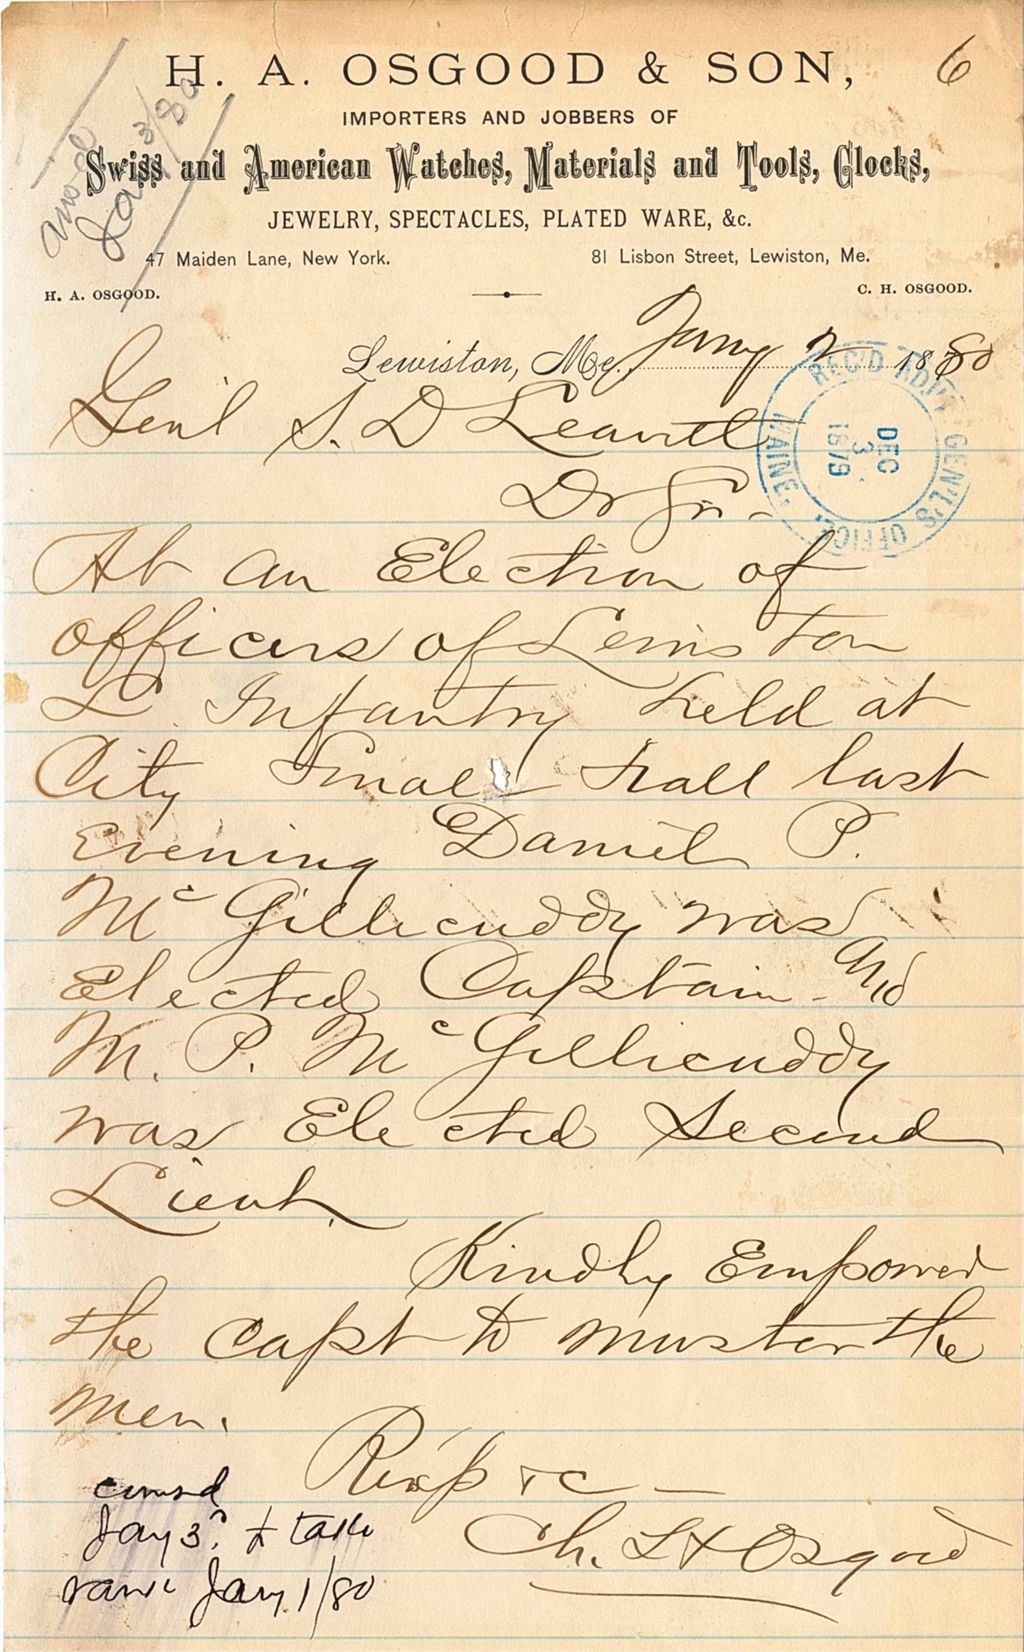 H. A. OSGOOD & SON,
6
IMPORTERS AND JOBBERS OF
Swiss and American Watches, Materials and Tools, Clocks,
JEWELRY, SPECTACLES, PLATED WARE, &c.
47 Maiden Lane, New York.
81 Lisbon Street, Lewiston, Me.
H. A. OSGOOD.
C. H. OSGOOD.
Jany 3/80
Lewiston, Me. Jany 2 1880
REC'D ADJT. GEN'L'S OFFICE, MAINE.
DEC
3
1879
Genl S. D Leavitt
Dr Sir -
At an Election of
officers of Lewiston
L. Infantry held at
City Small Hall last
Evening Daniel P.
McGillicuddy was
Elected Captain - And
M. P. McGillicuddy
was Elected Second
Lieut.
Kindly Empower
the Capt to muster the
men.
Resp &c -
Ch. H Osgood
Jany 3d to take
rank Jany 1/80